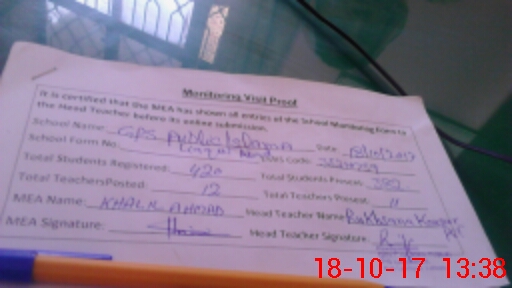 Monitoring Visit Proof
It is certified that the MEA has shown all entries of the School Monitoring Form to
the Head Teacher before its online submission.
School Name: GPS Public Date 18/10/2017
School Form No.
Total Students Registered: 420 Total Students Present: 382
Total Teachers Posted: 12 Total Teachers Present: 11
MEA Name: KHALIL AHMAD Head Teacher Name: Rukhsana Kausar
MEA Signature: Head Teacher Signature:
18-10-17 13:38